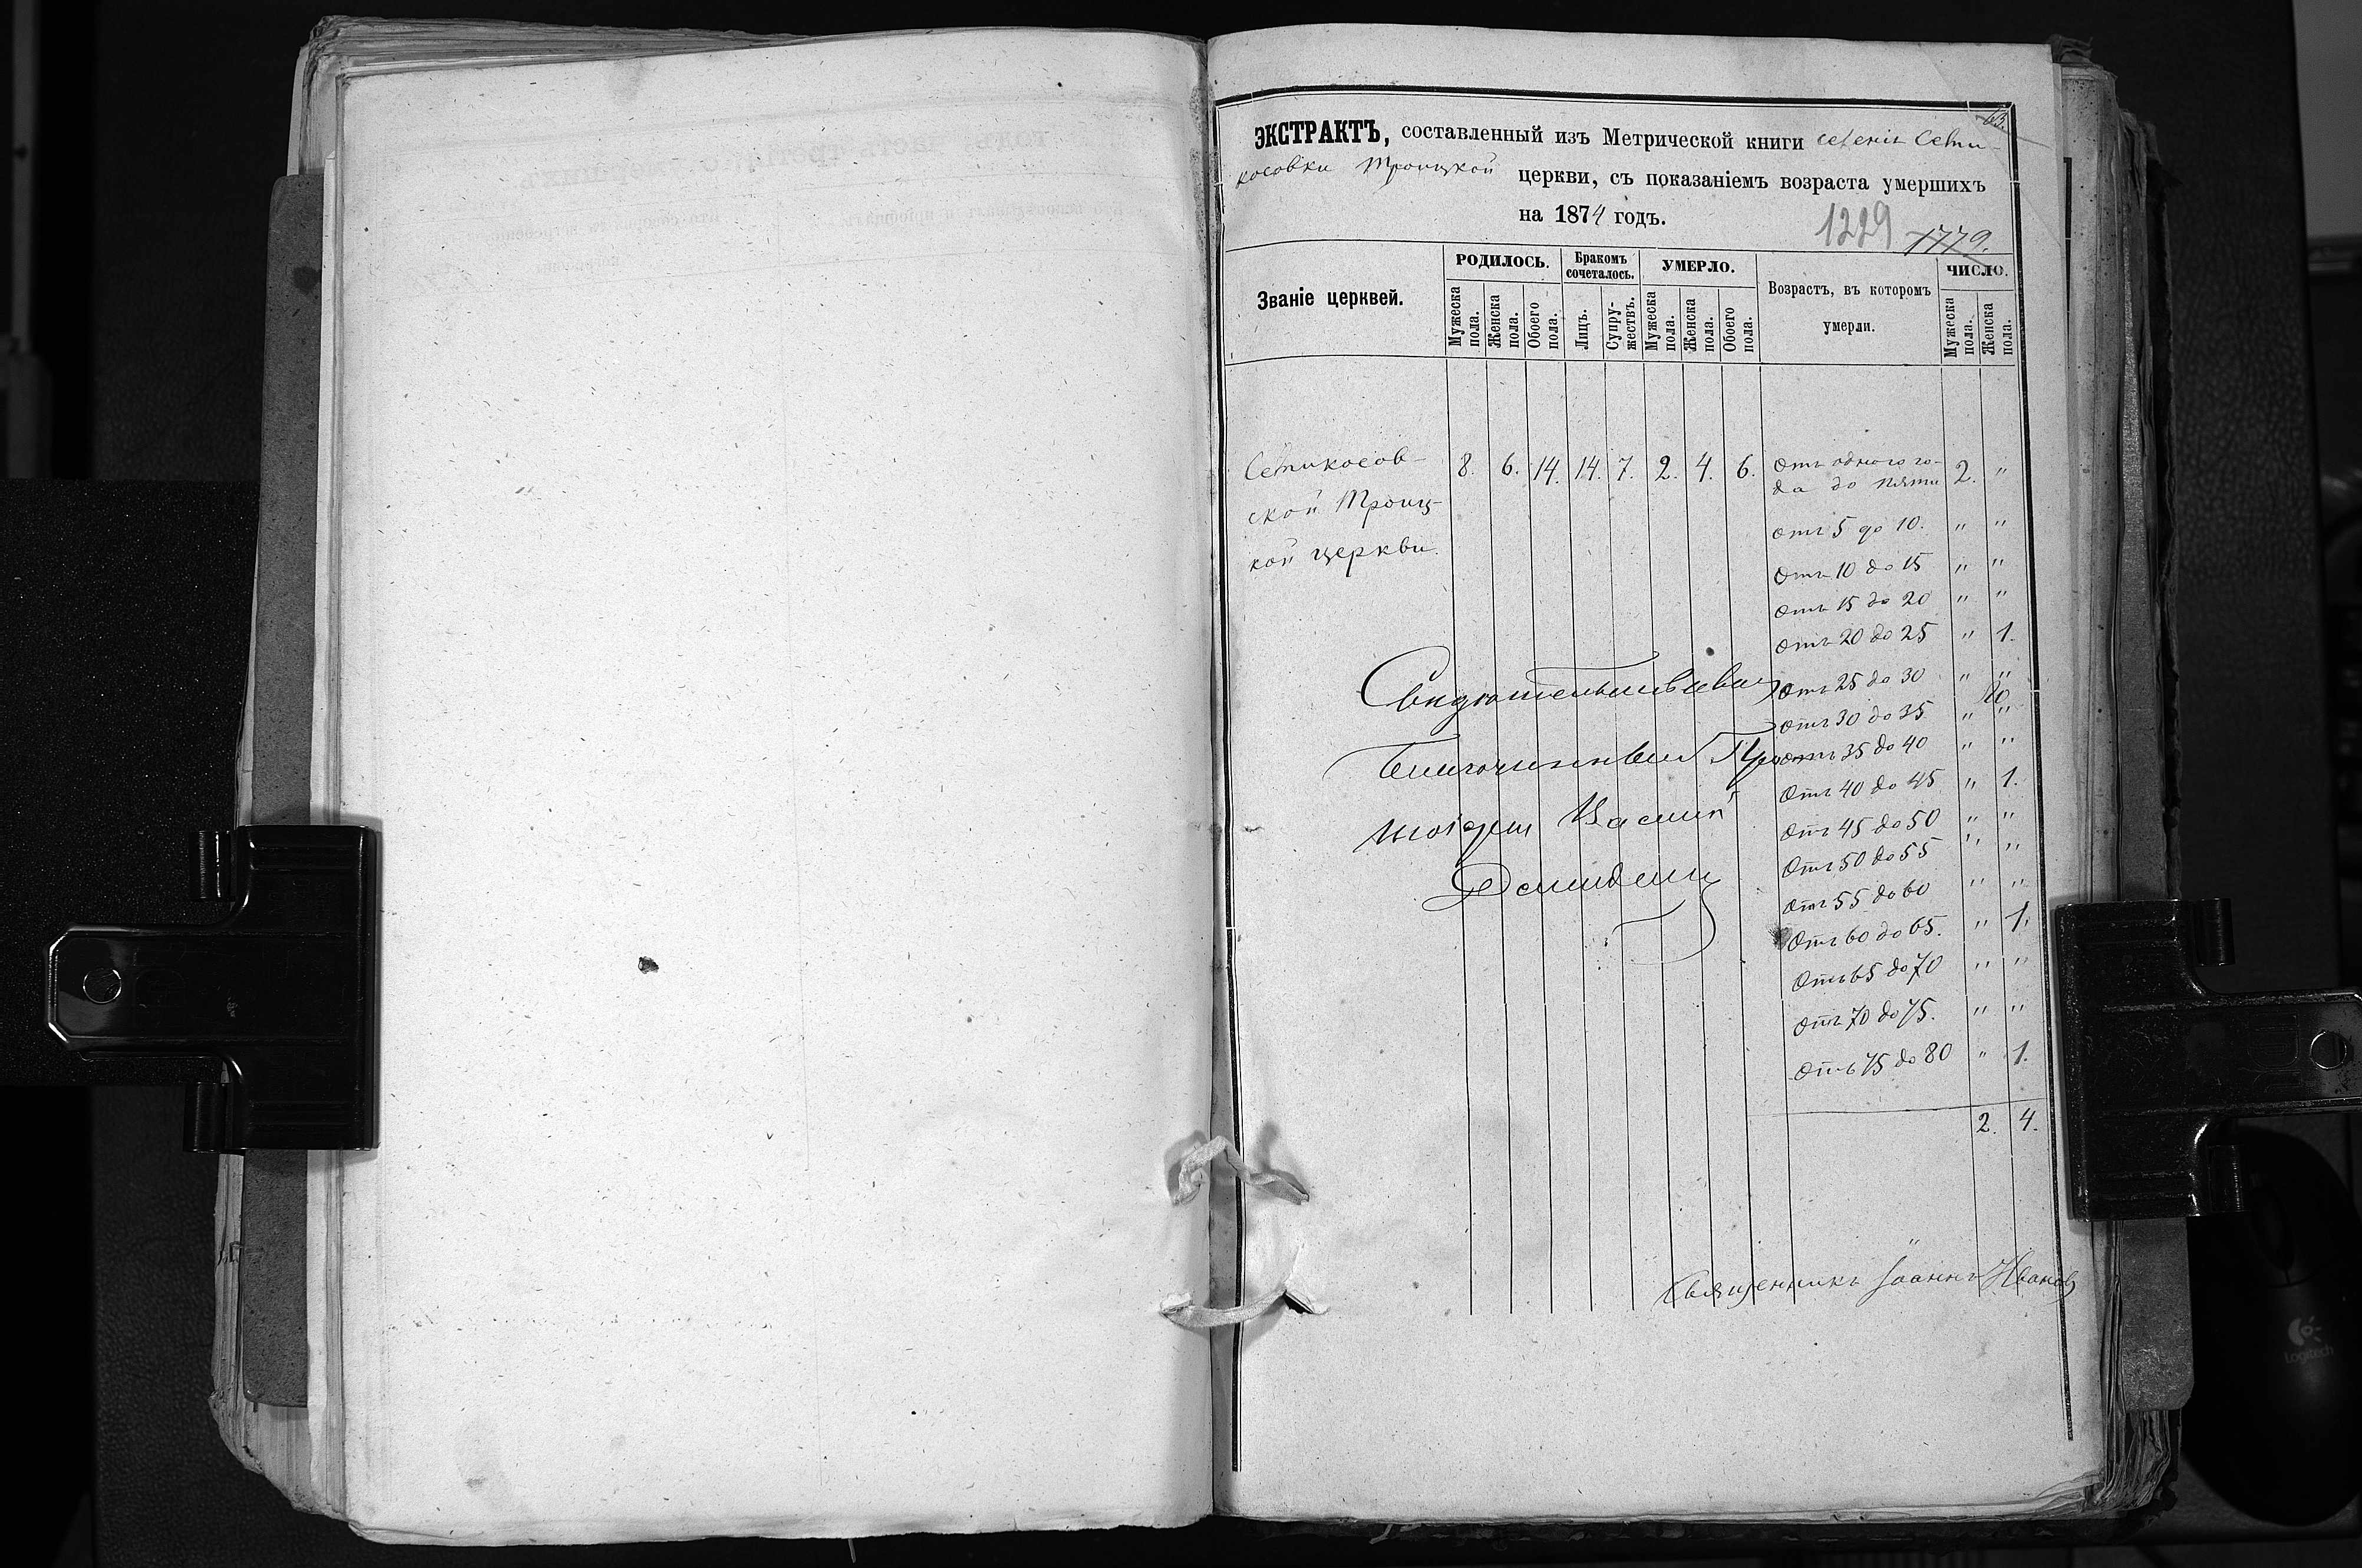 63.
ЭКСТРАКТЪ, составленный изъ Метрической книги селенія Сети-
косовки Троицкой церкви, съ показаніемъ возраста умершихъ
на 1874 годъ.
1229 1779.
Званіе церквей.
РОДИЛОСЬ.
Мужеска пола.
Женска пола.
Обоего пола.
Бракомъ сочеталось.
Лицъ.
Супружествъ.
УМЕРЛО.
Мужеска пола.
Женска пола.
Обоего пола.
Возрастъ, въ которомъ
умерли.
ЧИСЛО.
Мужеска пола.
Женска пола.
Сетикосов- 8. 6. 14. 14. 7. 2. 4. 6. Отъ одного го-
да до пяти 2. "
ской Троиц-
кой церкви.
отъ 5 до 10. " "
Отъ 10 до 15 " "
Отъ 15 до 20 " "
Отъ 20 до 25 " 1.
Отъ 25 до 30 " "
Отъ 30 до 35 " "
Отъ 35 до 40 " "
Отъ 40 до 45 " 1.
Отъ 45 до 50 " "
Отъ 50 до 55 " "
Отъ 55 до 60 " "
Отъ 60 до 65. " 1.
Отъ 65 до 70 " "
Отъ 70 до 75. " "
Отъ 75 до 80 " 1.
2. 4.
Благочинный Про
тоіерей Василій
Священникъ Іоаннъ Ивановъ
Logitech